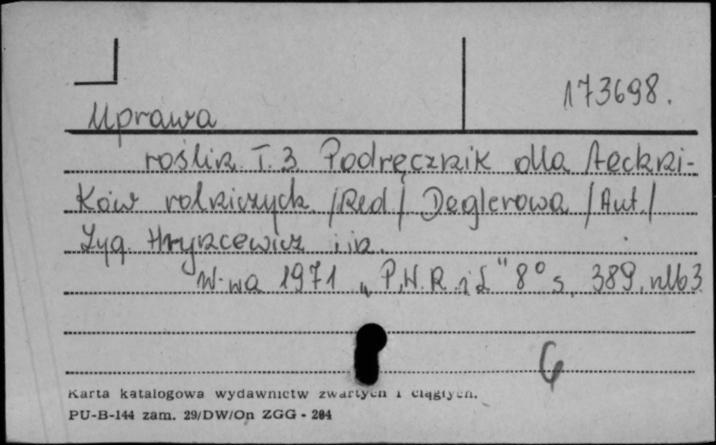 173698.
Uprawa
roślin T. 3 Podręcznik dla techni-
ków rolniczych /Red/ Deglerowa /Aut./
Zyg. Hryncewicz i in.
W-wa 1971 „P.W.R. i L" 8° s. 389, nlb 3
6
Karta katalogowa wydawnictw zwartych i ciągłych.
PU-B-144 zam. 29/DW/On ZGG - 284